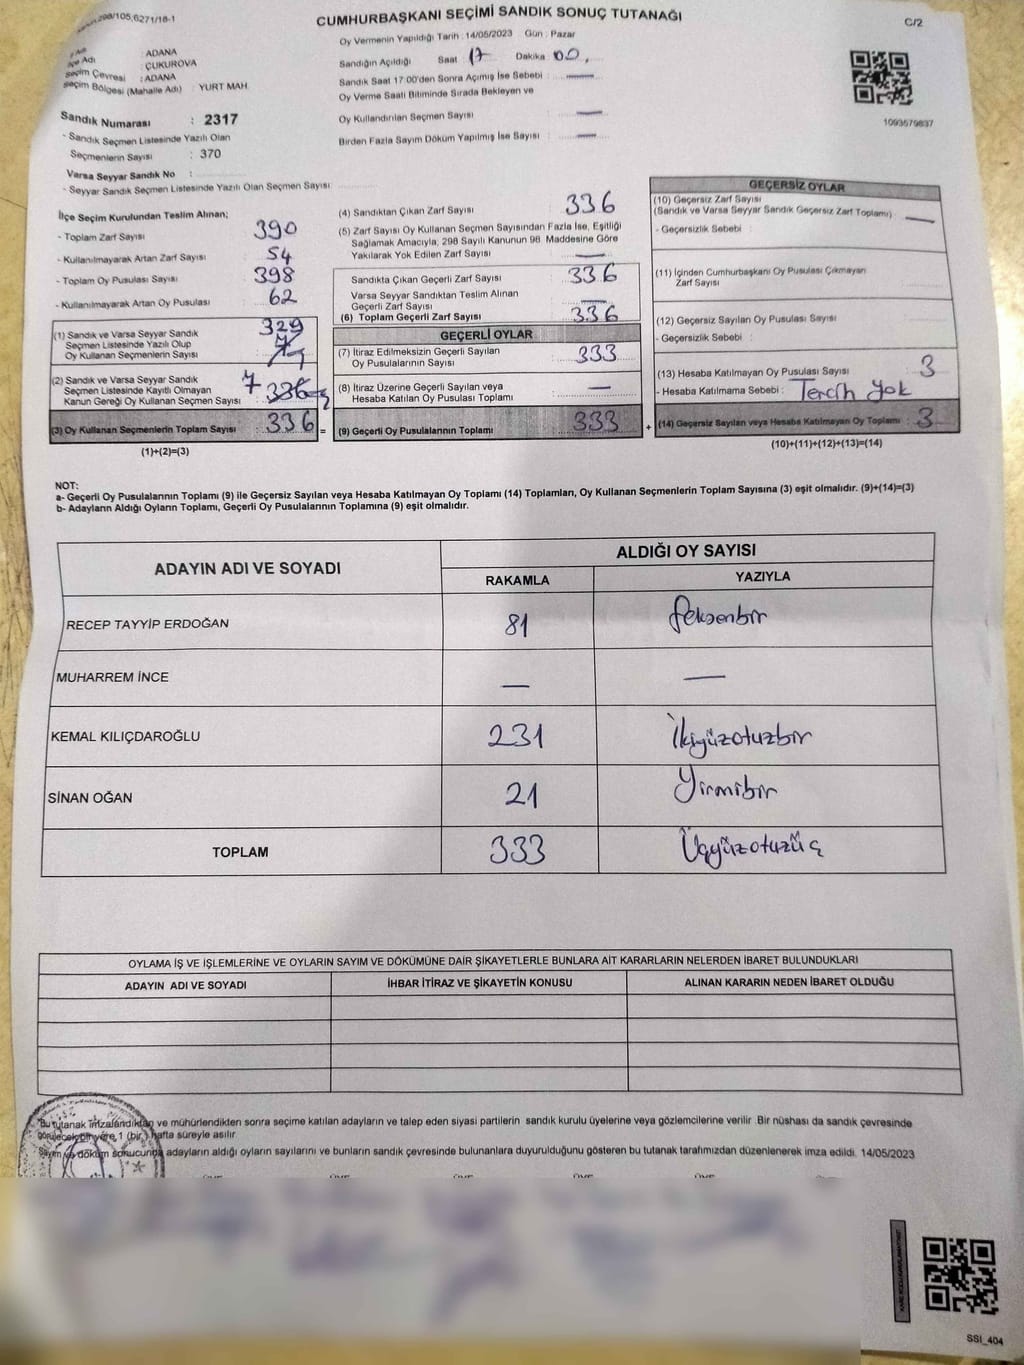 CUMHURBAŞKANI SEÇİMİ SANDIK SONUÇ TUTANAĞI
C/2
İlçe Adı : ADANA
: ÇUKUROVA
Seçim Çevresi : ADANA
Seçim Bölgesi (Mahalle Adı) : YURT MAH.
Sandık Numarası : 2317
- Sandık Seçmen Listesinde Yazılı Olan
Seçmenlerin Sayısı : 370
Varsa Seyyar Sandık No :
- Seyyar Sandık Seçmen Listesinde Yazılı Olan Seçmen Sayısı:
Oy Vermenin Yapıldığı Tarih : 14/05/2023 Gün : Pazar
Sandığın Açıldığı Saat 17 Dakika 00
Sandık Saat 17:00'den Sonra Açımış İse Sebebi : —
Oy Verme Saati Bitiminde Sırada Bekleyen ve
Oy Kullandırılan Seçmen Sayısı : —
Birden Fazla Sayım Döküm Yapılmış İse Sayısı : —
1093579837
İlçe Seçim Kurulundan Teslim Alınan;
- Toplam Zarf Sayısı : 390
- Kullanılmayarak Artan Zarf Sayısı : 54
- Toplam Oy Pusulası Sayısı : 398
- Kullanılmayarak Artan Oy Pusulası : 62
(1) Sandık ve Varsa Seyyar Sandık
Seçmen Listesinde Yazılı Olup
Oy Kullanan Seçmenlerin Sayısı : 329
(2) Sandık ve Varsa Seyyar Sandık
Seçmen Listesinde Kayıtlı Olmayan
Kanun Gereği Oy Kullanan Seçmen Sayısı : 7 336
(3) Oy Kullanan Seçmenlerin Toplam Sayısı : 336 =
(1)+(2)=(3)
(4) Sandıktan Çıkan Zarf Sayısı : 336
(5) Zarf Sayısı Oy Kullanan Seçmen Sayısından Fazla İse, Eşitliği
Sağlamak Amacıyla; 298 Sayılı Kanunun 98. Maddesine Göre
Yakılarak Yok Edilen Zarf Sayısı : —
Sandıkta Çıkan Geçerli Zarf Sayısı : 336
Varsa Seyyar Sandıktan Teslim Alınan
Geçerli Zarf Sayısı : —
(6) Toplam Geçerli Zarf Sayısı : 336
GEÇERLİ OYLAR
(7) İtiraz Edilmeksizin Geçerli Sayılan
Oy Pusulalarının Sayısı : 333
(8) İtiraz Üzerine Geçerli Sayılan veya
Hesaba Katılan Oy Pusulası Toplamı : —
(9) Geçerli Oy Pusulalarının Toplamı : 333 +
GEÇERSİZ OYLAR
(10) Geçersiz Zarf Sayısı
(Sandık ve Varsa Seyyar Sandık Geçersiz Zarf Toplamı) : —
- Geçersizlik Sebebi :
(11) İçinden Cumhurbaşkanı Oy Pusulası Çıkmayan
Zarf Sayısı
(12) Geçersiz Sayılan Oy Pusulası Sayısı :
- Geçersizlik Sebebi :
(13) Hesaba Katılmayan Oy Pusulası Sayısı : 3
- Hesaba Katılmama Sebebi : Tercih yok
(14) Geçersiz Sayılan veya Hesaba Katılmayan Oy Toplamı : 3
(10)+(11)+(12)+(13)=(14)
NOT:
a- Geçerli Oy Pusulalarının Toplamı (9) ile Geçersiz Sayılan veya Hesaba Katılmayan Oy Toplamı (14) Toplamları, Oy Kullanan Seçmenlerin Toplam Sayısına (3) eşit olmalıdır. (9)+(14)=(3)
b- Adayların Aldığı Oyların Toplamı, Geçerli Oy Pusulalarının Toplamına (9) eşit olmalıdır.
ADAYIN ADI VE SOYADI
ALDIĞI OY SAYISI
RAKAMLA YAZIYLA
RECEP TAYYİP ERDOĞAN 81 Seksenbir
MUHARREM İNCE — —
KEMAL KILIÇDAROĞLU 231 İkiyüzotuzbir
SİNAN OĞAN 21 Yirmibir
TOPLAM 333 Üçyüzotuzüç
OYLAMA İŞ VE İŞLEMLERİNE VE OYLARIN SAYIM VE DÖKÜMÜNE DAİR ŞİKAYETLERLE BUNLARA AİT KARARLARIN NELERDEN İBARET BULUNDUKLARI
ADAYIN ADI VE SOYADI İHBAR İTİRAZ VE ŞİKAYETİN KONUSU ALINAN KARARIN NEDEN İBARET OLDUĞU
Bu tutanak imzalandıktan ve mühürlendikten sonra seçime katılan adayların ve talep eden siyasi partilerin sandık kurulu üyelerine veya gözlemcilerine verilir. Bir nüshası da sandık çevresinde
görülecek bir yere 1 (bir) hafta süreyle asılır.
Sayım ve döküm sonucunda adayların aldığı oyların sayılarını ve bunların sandık çevresinde bulunanlara duyurulduğunu gösteren bu tutanak tarafımızdan düzenlenerek imza edildi. 14/05/2023
SSI_404